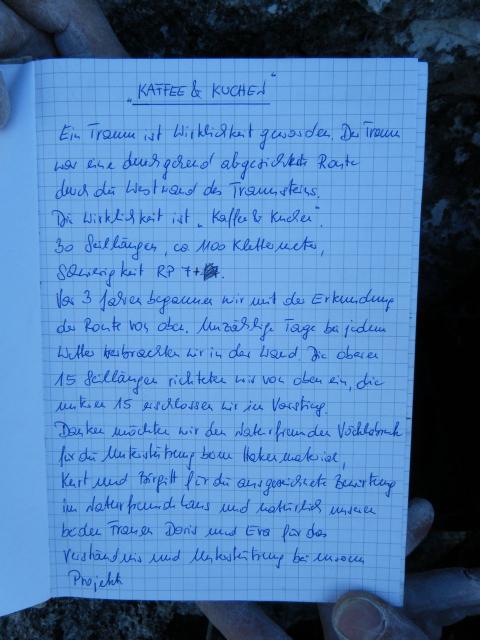 „KAFFEE & KUCHEN"
Ein Traum ist Wirklichkeit geworden. Der Traum
war eine durchgehend abgesicherte Route
durch die Westwand des Traunsteins.
Die Wirklichkeit ist „Kaffee & Kuchen".
30 Seillängen, ca 1100 Klettermeter,
Schwierigkeit RP 7+.
Vor 3 Jahren begannen wir mit der Erkundung
der Route von oben. Unzählige Tage bei jedem
Wetter verbrachten wir in der Wand. Die oberen
15 Seillängen richteten wir von oben ein, die
unteren 15 erschlossen wir im Vorstieg.
Danken möchten wir den Naturfreunden Vöcklabruck
für die Unterstützung beim Hakenmaterial,
Kurt und Birgitt für die ausgezeichnete Bewirtung
im Naturfreundehaus und natürlich unseren
beiden Frauen Doris und Eva für das
Verständnis und Unterstützung bei unserem
Projekt